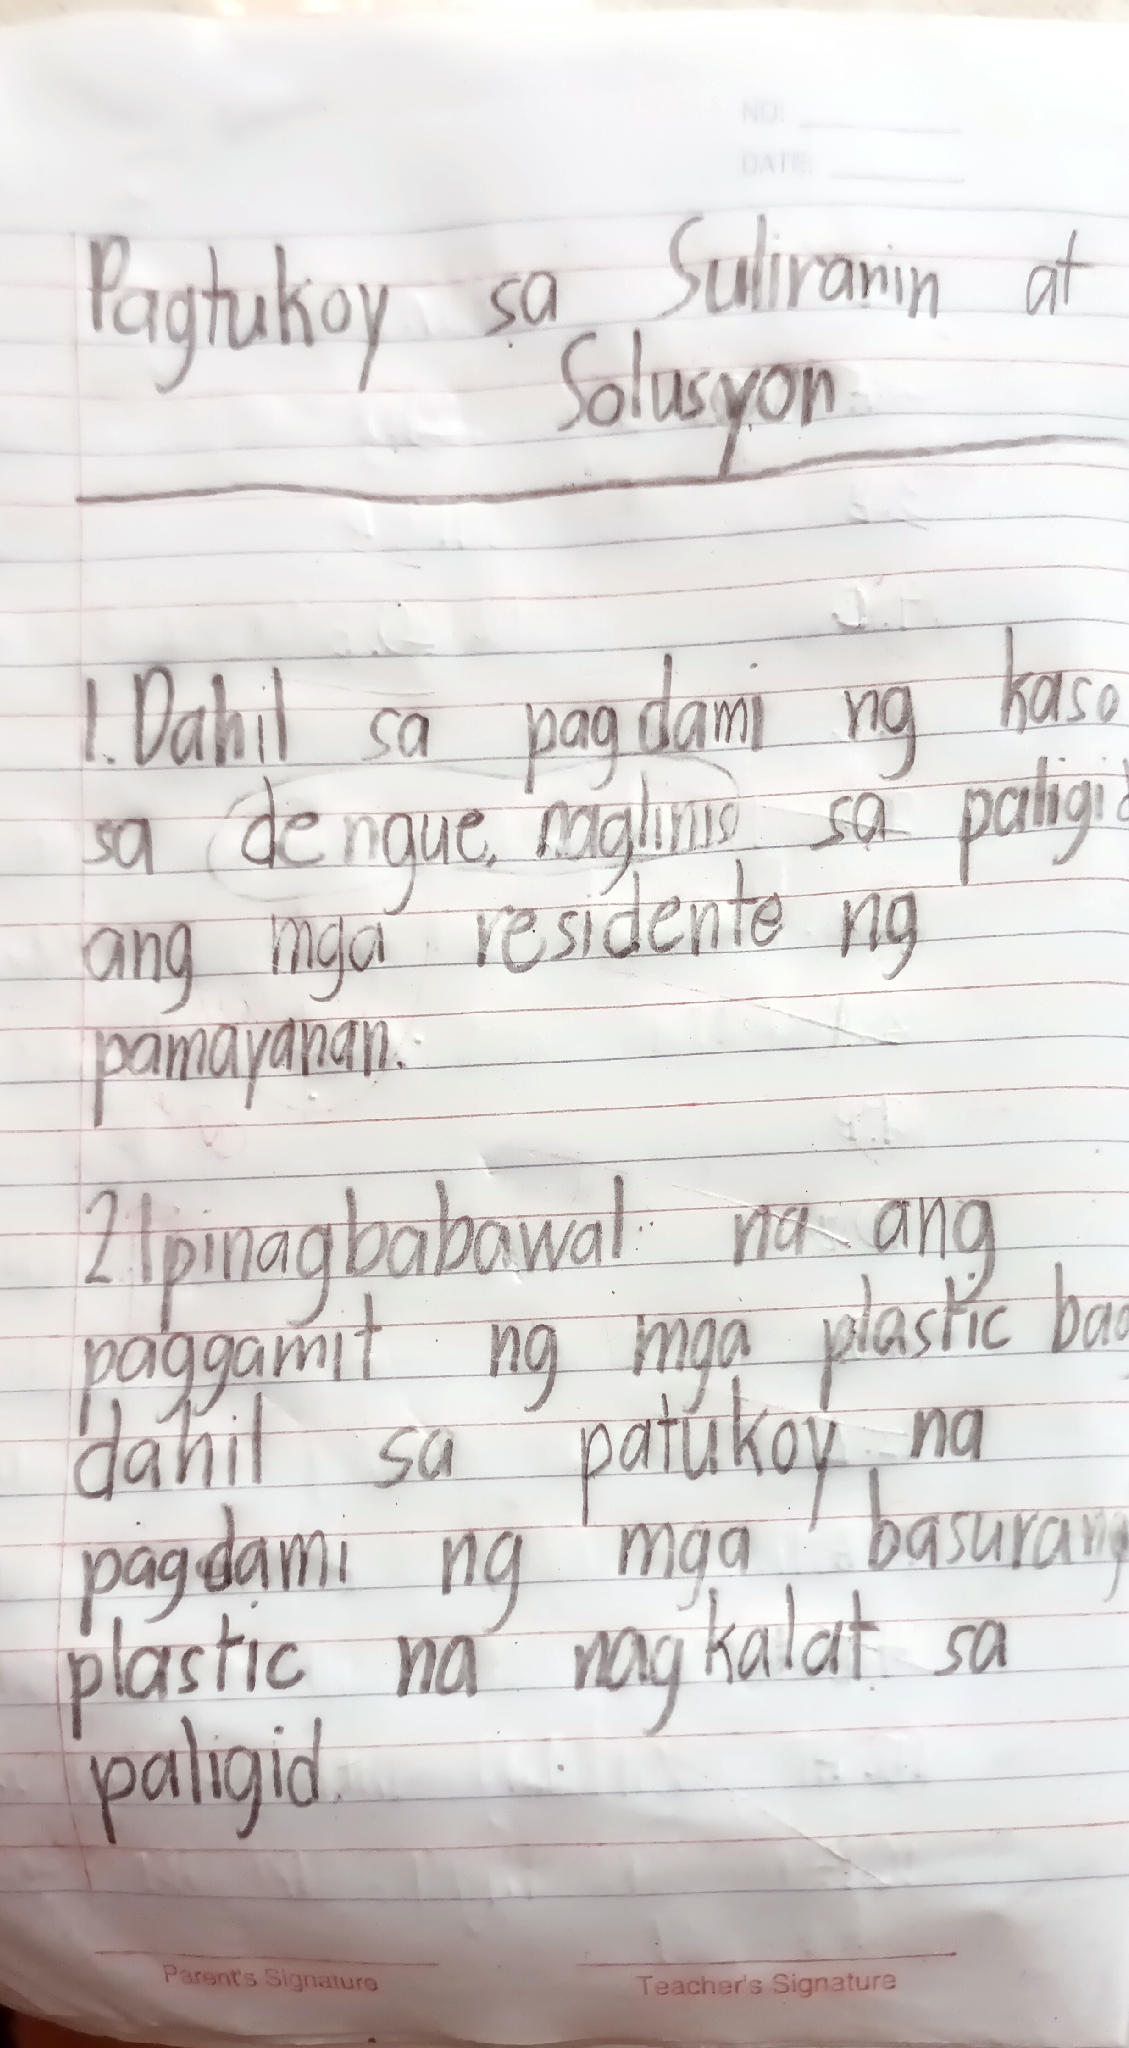 NO:
DATE:
Pagtukoy sa Suliranin at
Solusyon
1. Dahil sa pagdami ng kaso
sa dengue, naglinis sa paligid
ang mga residente ng
pamayanan.
2. Ipinagbabawal na ang
paggamit ng mga plastic bag
dahil sa patukoy na
pagdami ng mga basurang
plastic na nagkalat sa
paligid.
Parent's Signature
Teacher's Signature